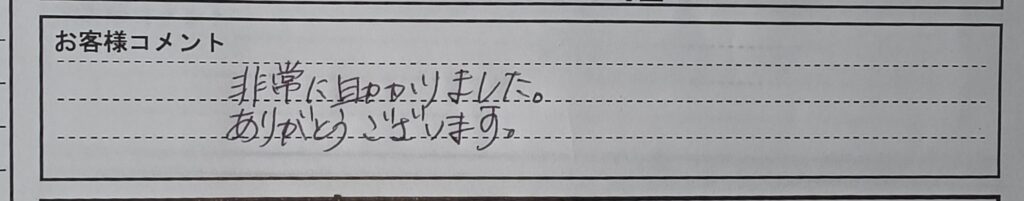 お客様コメント
非常に助かりました。
ありがとうございます。